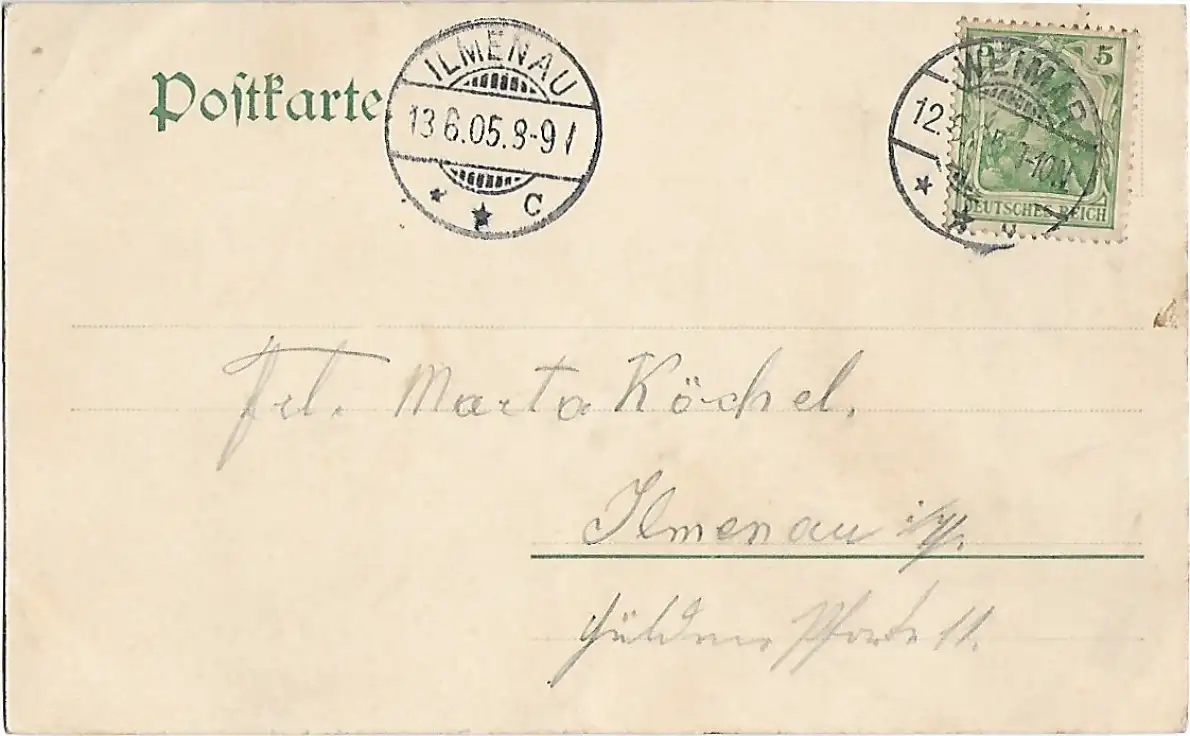 Postkarte
ILMENAU
13 6.05.8-9 V
* * C
WEIMAR
5
12.
-10 N
DEUTSCHES REICH
Frl. Marta Köchel.
Ilmenau i/Th.
Güldene Pforte 11.